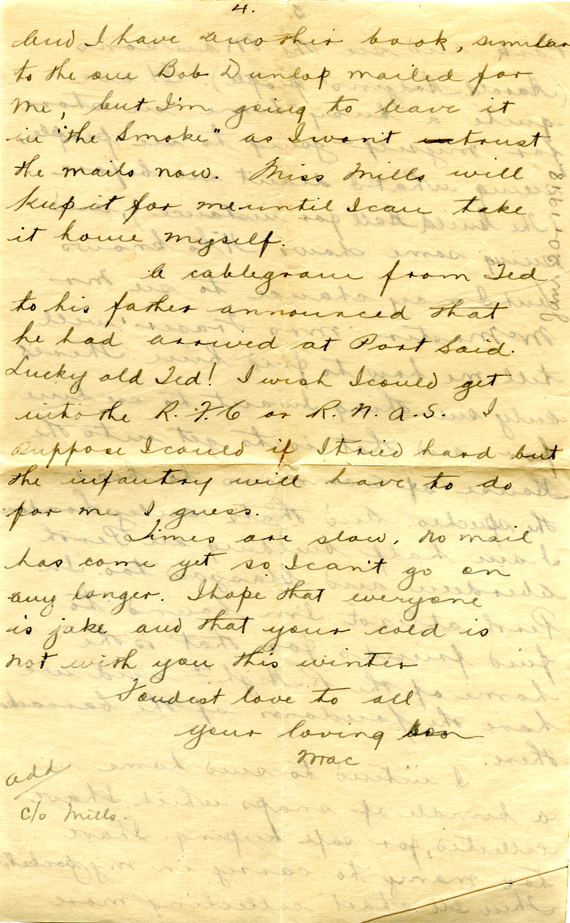 4.
And I have another book, similar
to the one Bob Dunlop mailed for
me, but I'm going to leave it
in "the Smoke" as I won't trust
the mails now. Miss Mills will
keep it for me until I can take
it home myself.
A cablegram from Ted
to his father announced that
he had arrived at Port Said.
Lucky old Ted! I wish I could get
into the R.F.C or R.N.A.S. I
suppose I could if I tried hard but
the infantry will have to do
for me I guess.
Times are slow, no mail
has come yet so I can't go on
any longer. I hope that everyone
is jake and that your cold is
not with you this winter
Fondest love to all
your loving son
Mac
add
c/o Mills.
Jan. 20. 1918